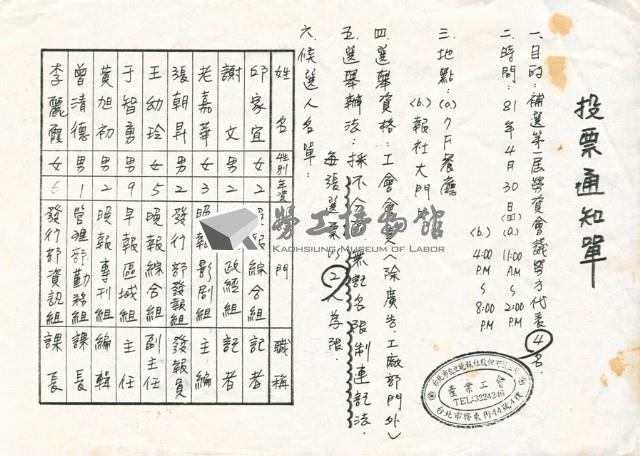 投票通知單
一.目的:補選第一屆勞資會議勞方代表4名
二.時間:81年4月30日(四)(a.) 11:00 A.M ~ 2:00 P.M
(b.) 4:00 P.M ~ 8:00 P.M
三.地點:(a.) 7F餐廳
(b.) 報社大門
四.選舉資格:工會會(除廣告.工廠部門外)
五.選舉辦法:採不無記名限制連記法.
每張選2人為限.
六.候選人名單:
姓名 性別 年資 門 職稱
邱家宜 女 2 綜合組 記者
謝文 男 2 政經組 記者
老嘉華 女 3 晚報影劇組 主編
張朝昇 男 2 發行部發報組 發報員
王幼玲 女 5 晚報綜合組 副主任
于智勇 男 9 早報區域組 主任
黃旭初 男 2 晚報專刊組 編輯
曾清德 男 1 管理部勤務組 課長
李麗霞 女 6 發行部資訊組 課長
產業工會
TEL:3224246
台北市屏東街44號4樓
勞工博物館
KAOHSIUNG MUSEUM OF LABOR